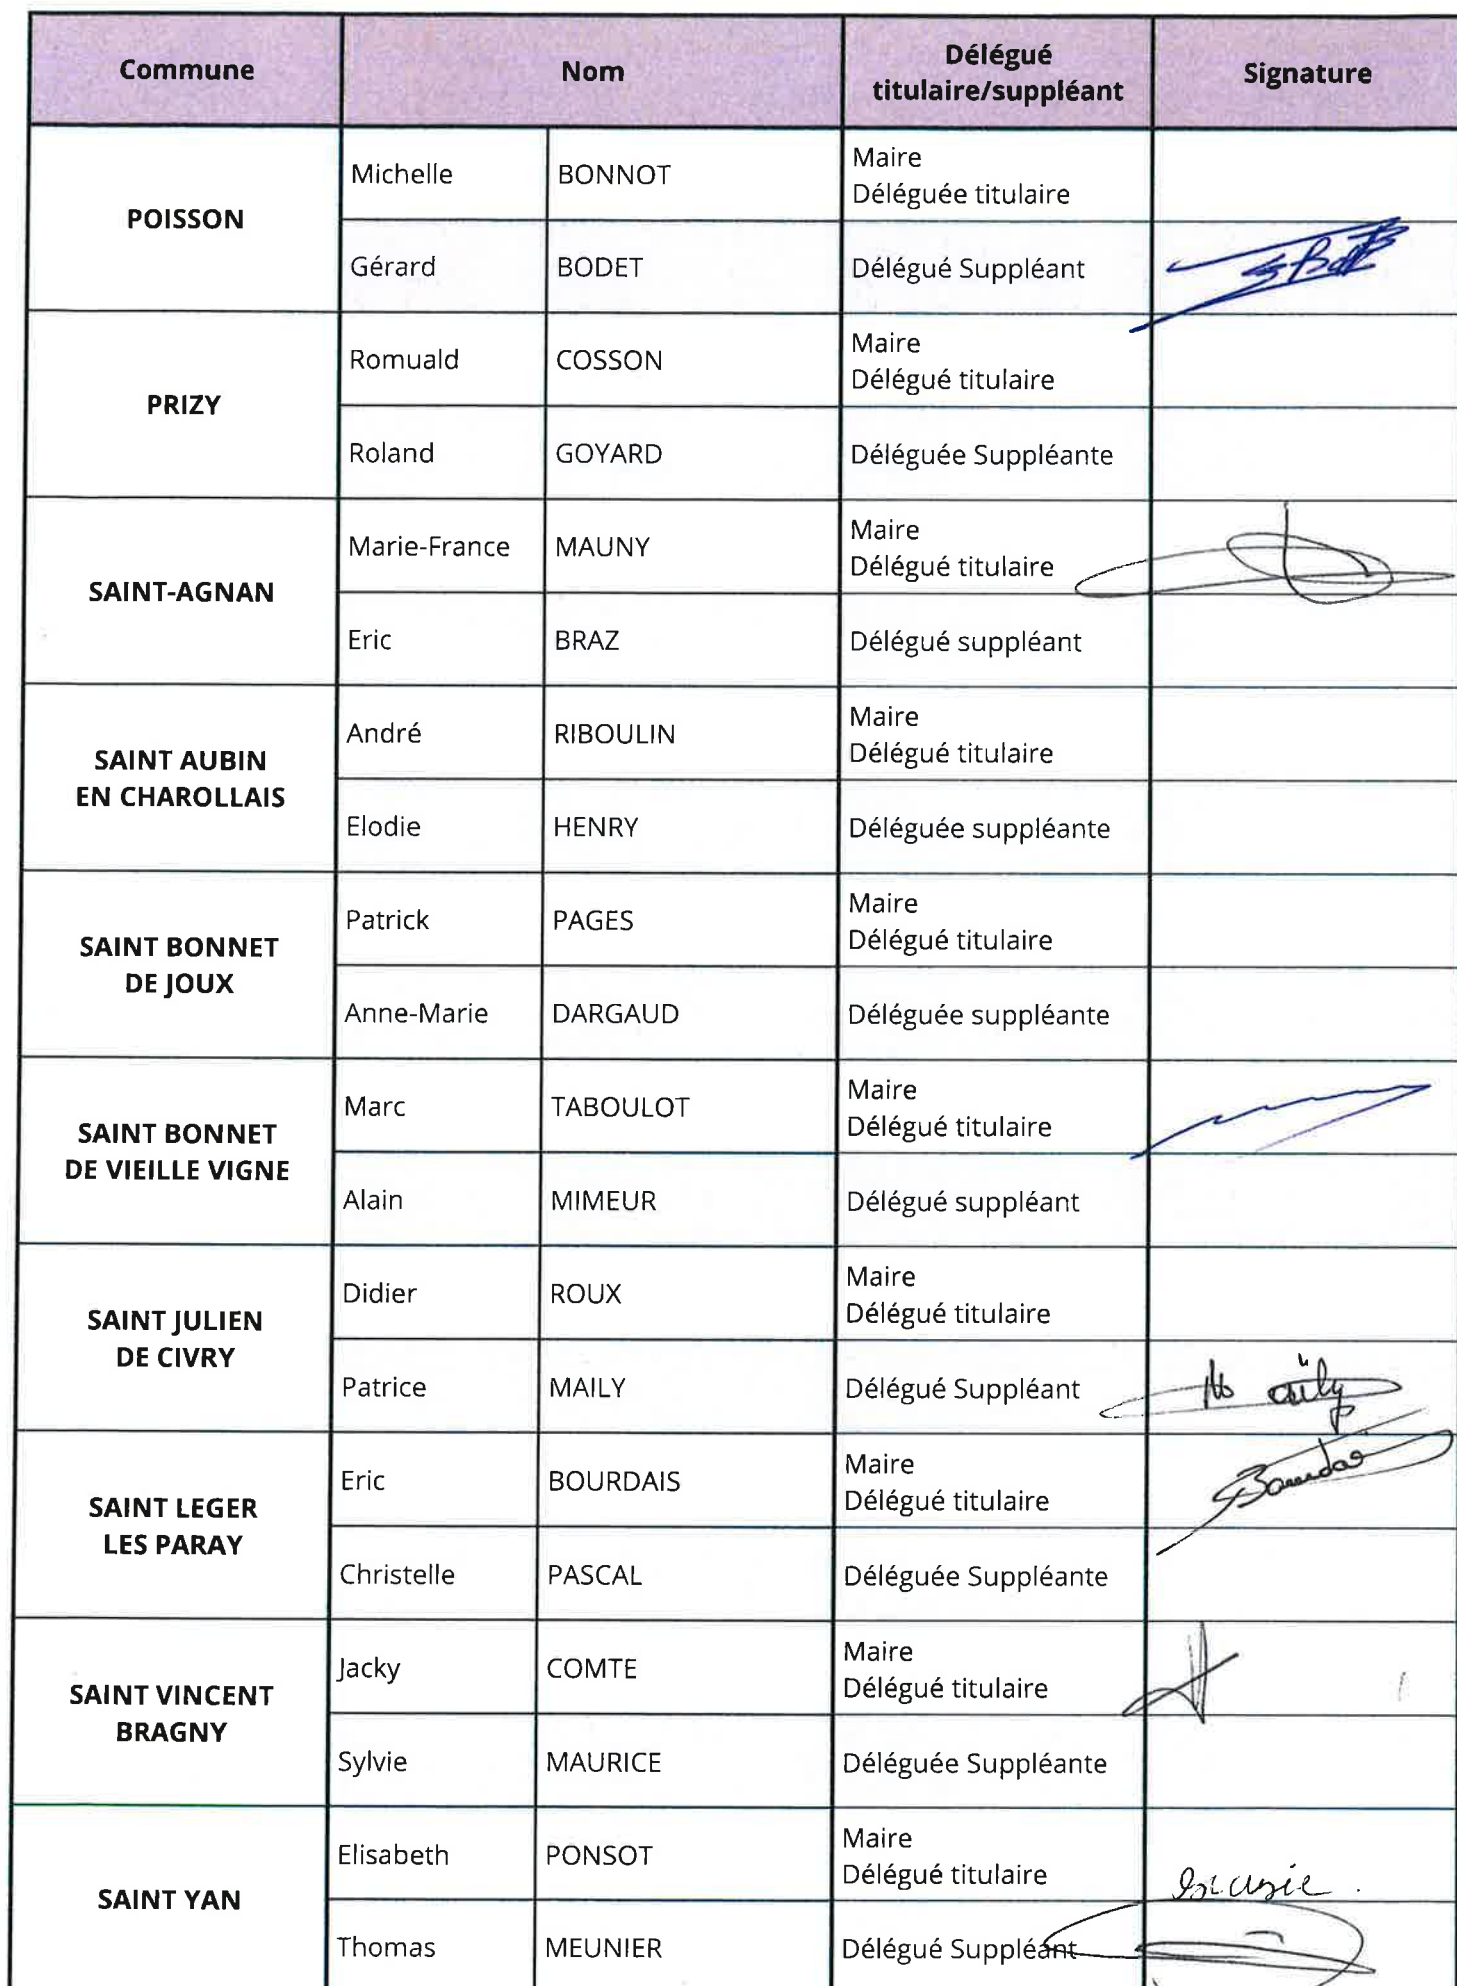 Commune Nom Délégué titulaire/suppléant Signature
POISSON
Michelle BONNOT Maire
Déléguée titulaire
Gérard BODET Délégué Suppléant
PRIZY
Romuald COSSON Maire
Délégué titulaire
Roland GOYARD Déléguée Suppléante
SAINT-AGNAN
Marie-France MAUNY Maire
Délégué titulaire
Eric BRAZ Délégué suppléant
SAINT AUBIN
EN CHAROLLAIS
André RIBOULIN Maire
Délégué titulaire
Elodie HENRY Déléguée suppléante
SAINT BONNET
DE JOUX
Patrick PAGES Maire
Délégué titulaire
Anne-Marie DARGAUD Déléguée suppléante
SAINT BONNET
DE VIEILLE VIGNE
Marc TABOULOT Maire
Délégué titulaire
Alain MIMEUR Délégué suppléant
SAINT JULIEN
DE CIVRY
Didier ROUX Maire
Délégué titulaire
Patrice MAILY Délégué Suppléant
SAINT LEGER
LES PARAY
Eric BOURDAIS Maire
Délégué titulaire
Christelle PASCAL Déléguée Suppléante
SAINT VINCENT
BRAGNY
Jacky COMTE Maire
Délégué titulaire
Sylvie MAURICE Déléguée Suppléante
SAINT YAN
Elisabeth PONSOT Maire
Délégué titulaire
Thomas MEUNIER Délégué Suppléant